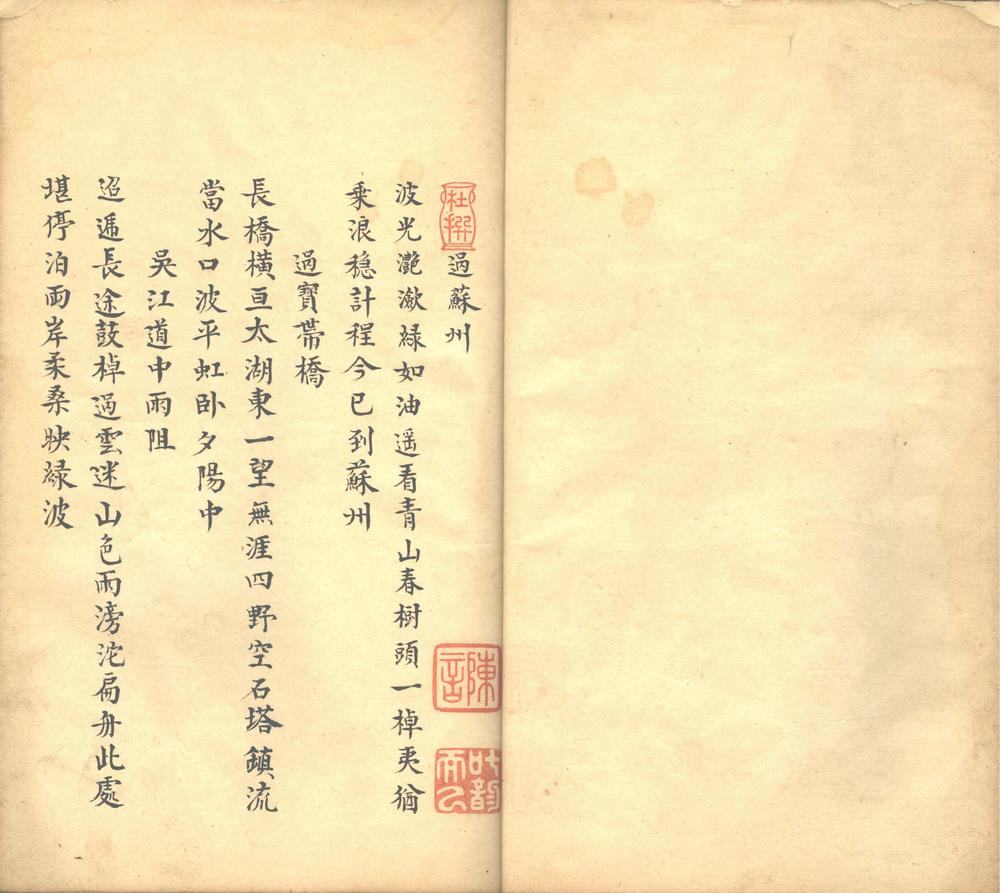 杜撰
過蘇州
波光灧瀲緑如油遥看青山春樹頭一棹夷猶
乗浪穏計程今已到蘇州
過寳帶橋
長橋橫亘太湖東一望無涯四野空石塔鎮流
當水口波平虹卧夕陽中
吳江道中雨阻
迢遞長途鼓棹過雲迷山色雨滂沱扁舟此處
堪停泊兩岸柔桑映緑波
陳言
叶韵而已